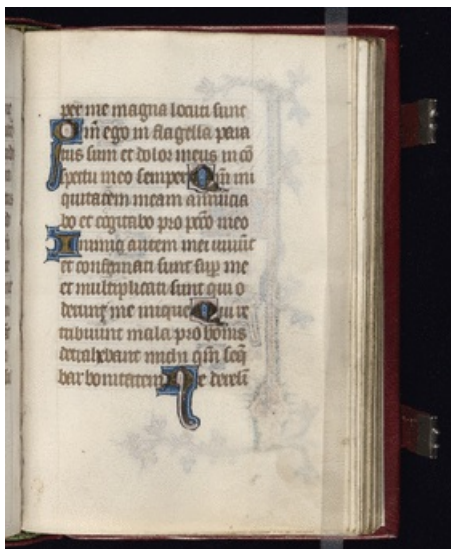 per me magna locuti sunt
Qm̄ ego in flagella para
tus sum et dolor meus in cō
spectu meo semper Qm̄ ini
quitatem meam annūcia
bo et cogitabo pro pctō meo
Inimici autem mei uiuūt
et confirmati sunt sup̱ me
et multiplicati sunt qui o
derunt me inique Qui re
tribuunt mala pro bonis
detrahebant michi qm̄ seq̄
bar bonitatem Ne derelī